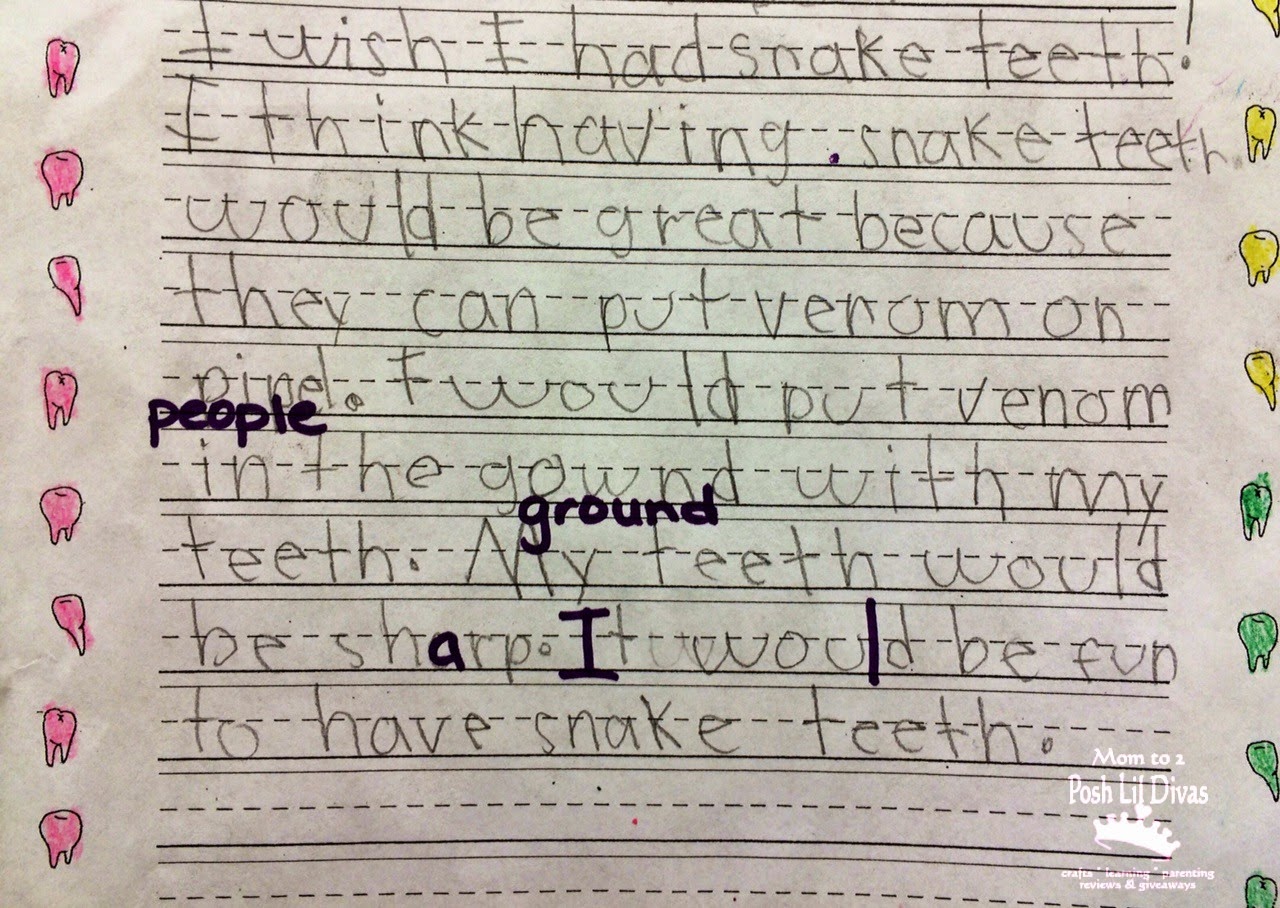 I wish I had snake teeth.
I think having . snake teeth
would be great because
they can put venom on
pinel. I would put venom
people
in the gownd with my
ground
teeth. My teeth would
be sharp. It would be fun
to have snake teeth.
Mom to 2
Posh Lil Divas
crafts * learning * parenting
reviews & giveaways